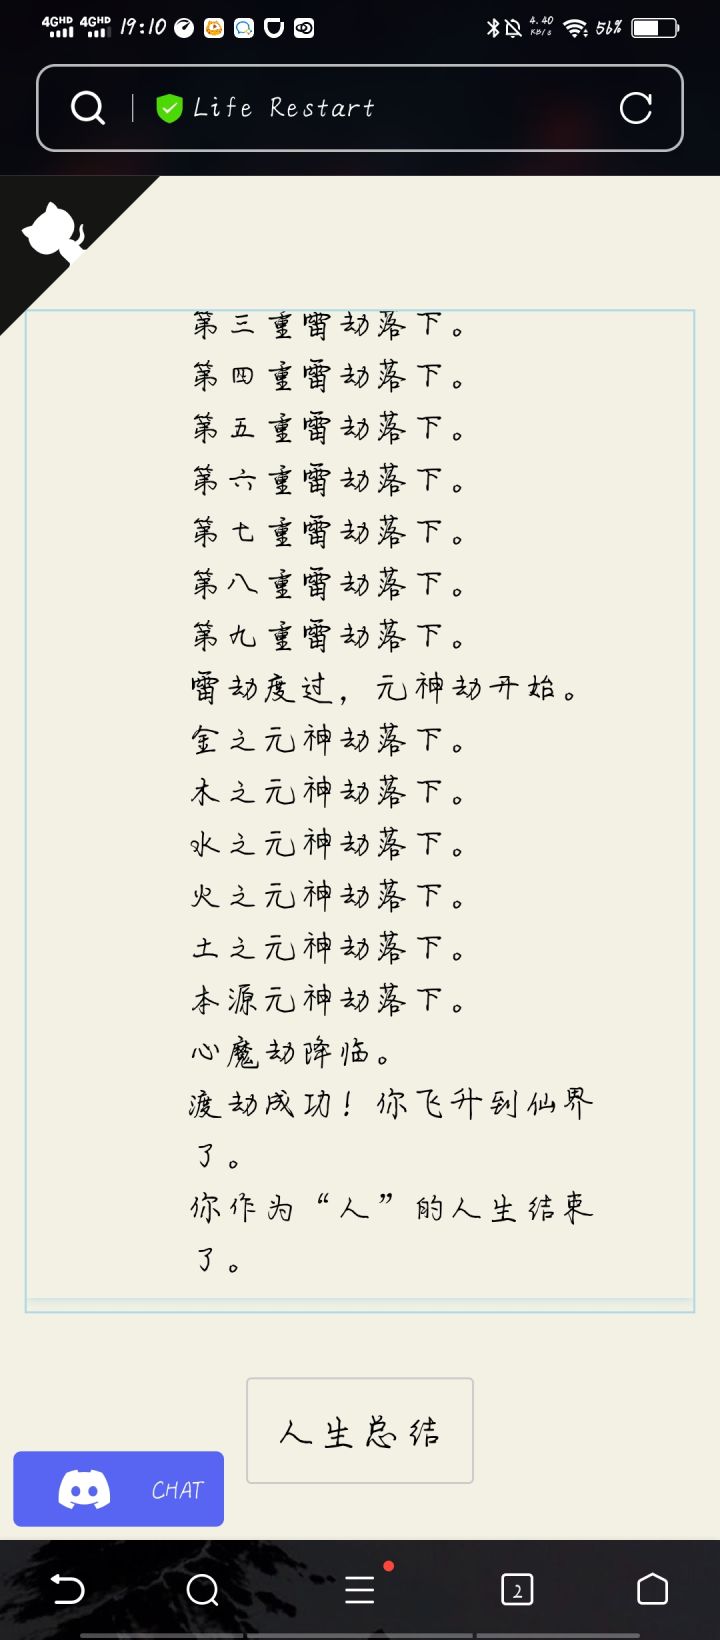 4GHD 4GHD 19:10 4.40 KB/s 56%
Life Restart
第三重雷劫落下。
第四重雷劫落下。
第五重雷劫落下。
第六重雷劫落下。
第七重雷劫落下。
第八重雷劫落下。
第九重雷劫落下。
雷劫度过，元神劫开始。
金之元神劫落下。
木之元神劫落下。
水之元神劫落下。
火之元神劫落下。
土之元神劫落下。
本源元神劫落下。
心魔劫降临。
渡劫成功！你飞升到仙界
了。
你作为“人”的人生结束
了。
人生总结
CHAT
2